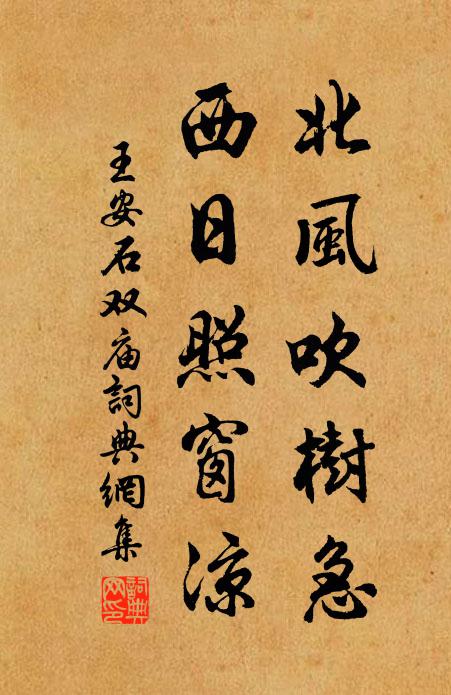 北風吹樹急
西日照窗涼
王安石双庙詞典網集
詞典網印